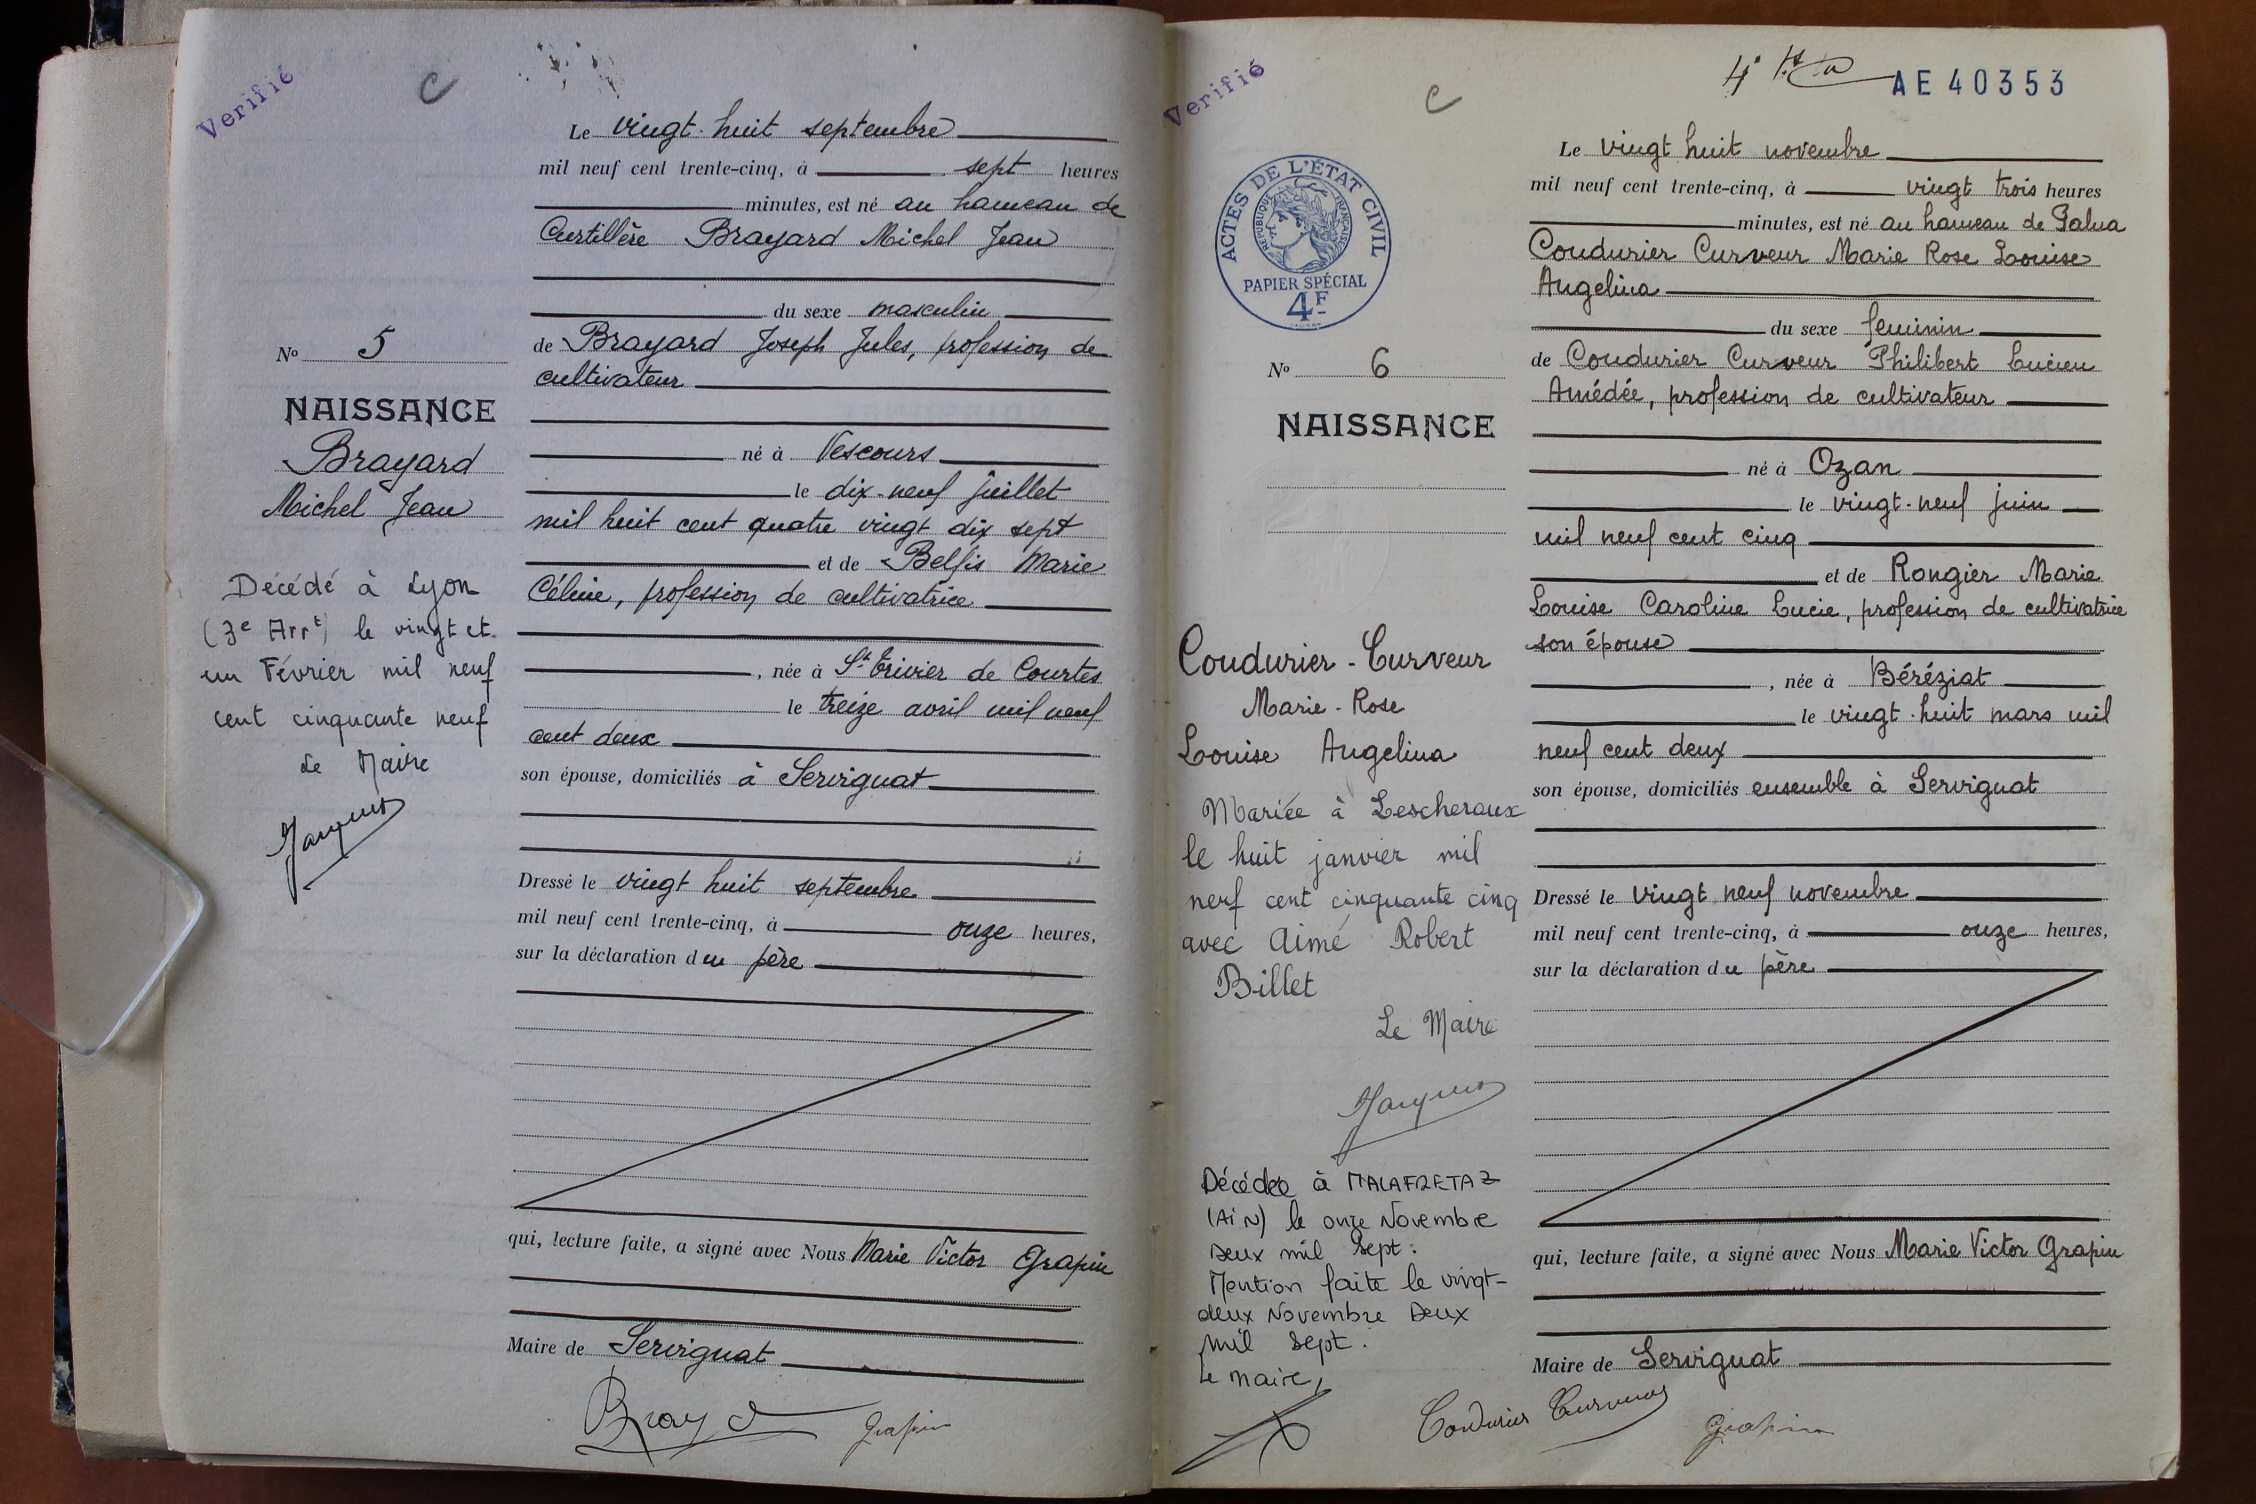 Verifié
C
Le vingt-huit septembre
mil neuf cent trente-cinq, à sept heures
minutes, est né au hameau de
Curtillère Brayard Michel Jean
du sexe masculin
No 5
de Brayard Joseph Jules, profession de
cultivateur
NAISSANCE
Brayard
Michel Jean
né à Vescours
le dix-neuf juillet
mil huit cent quatre vingt dix sept
et de Belfis Marie
Céline, profession de cultivatrice
, née à St Trivier de Courtes
le treize avril mil neuf
cent deux
son épouse, domiciliés à Servignat
Décédé à Lyon
(3e Arrt) le vingt et
un Février mil neuf
cent cinquante neuf
Le Maire
Dressé le vingt huit septembre
mil neuf cent trente-cinq, à onze heures,
sur la déclaration du père
qui, lecture faite, a signé avec Nous Marie Victor Grapin
Maire de Servignat
Grapin
Verifié
C
AE 40353
ACTES DE L'ÉTAT CIVIL
RÉPUBLIQUE FRANÇAISE
PAPIER SPÉCIAL
4F
Le vingt huit novembre
mil neuf cent trente-cinq, à vingt trois heures
minutes, est né au hameau de Palua
Coudurier Curveur Marie Rose Louise
Angelina
du sexe feminin
No 6
de Coudurier Curveur Philibert Lucien
Amédée, profession de cultivateur
NAISSANCE
né à Ozan
le vingt-neuf juin
mil neuf cent cinq
et de Rongier Marie
Louise Caroline Lucie, profession de cultivatrice
son épouse
, née à Béréziat
le vingt-huit mars mil
neuf cent deux
son épouse, domiciliés ensemble à Servignat
Coudurier-Curveur
Marie-Rose
Louise Angelina
Mariée à Lescheraux
le huit janvier mil
neuf cent cinquante cinq
avec Aimé Robert
Billet
Le Maire
Décédée à MALAFRETAZ
(AiN) le onze Novembre
Deux mil sept.
Mention faite le vingt-
deux Novembre Deux
mil sept.
Le maire,
Dressé le vingt neuf novembre
mil neuf cent trente-cinq, à onze heures,
sur la déclaration du père
qui, lecture faite, a signé avec Nous Marie Victor Grapin
Maire de Servignat
Coudurier Curveur
Grapin